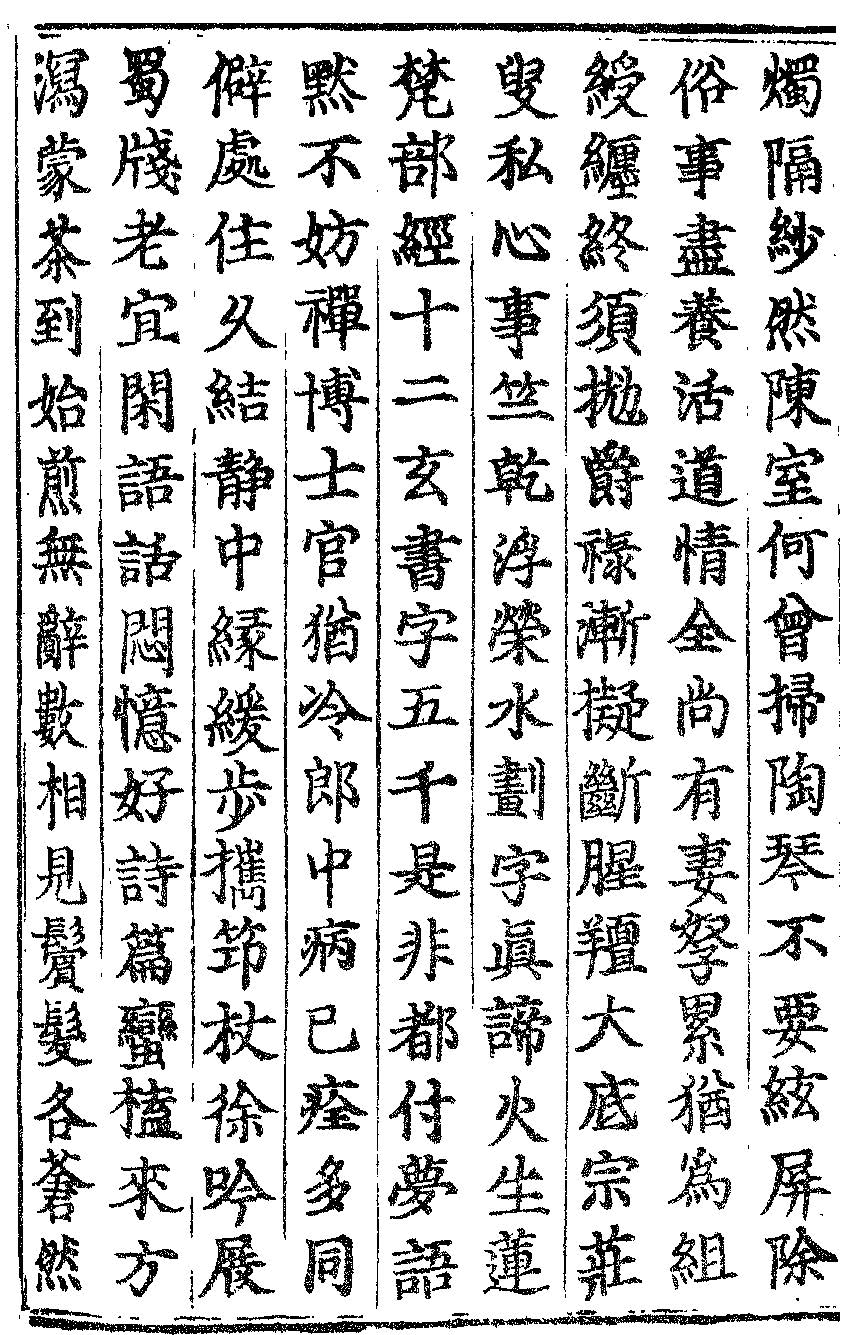 燭隔紗然陳室何曾掃陶琴不要絃屏除
俗事盡養活道情全尚有妻孥累猶爲組
綬纏終須拋爵祿漸擬斷腥羶大底宗莊
叟私心事竺乾浮榮水劃字眞諦火生蓮
梵部經十二玄書字五千是非都付夢語
默不妨禪博士官猶冷郎中病已痊多同
僻處住久結靜中緣緩步攜筇杖徐吟展
蜀牋老宜閑語話悶憶好詩篇蠻榼來方
瀉蒙茶到始煎無辭數相見鬢髮各蒼然